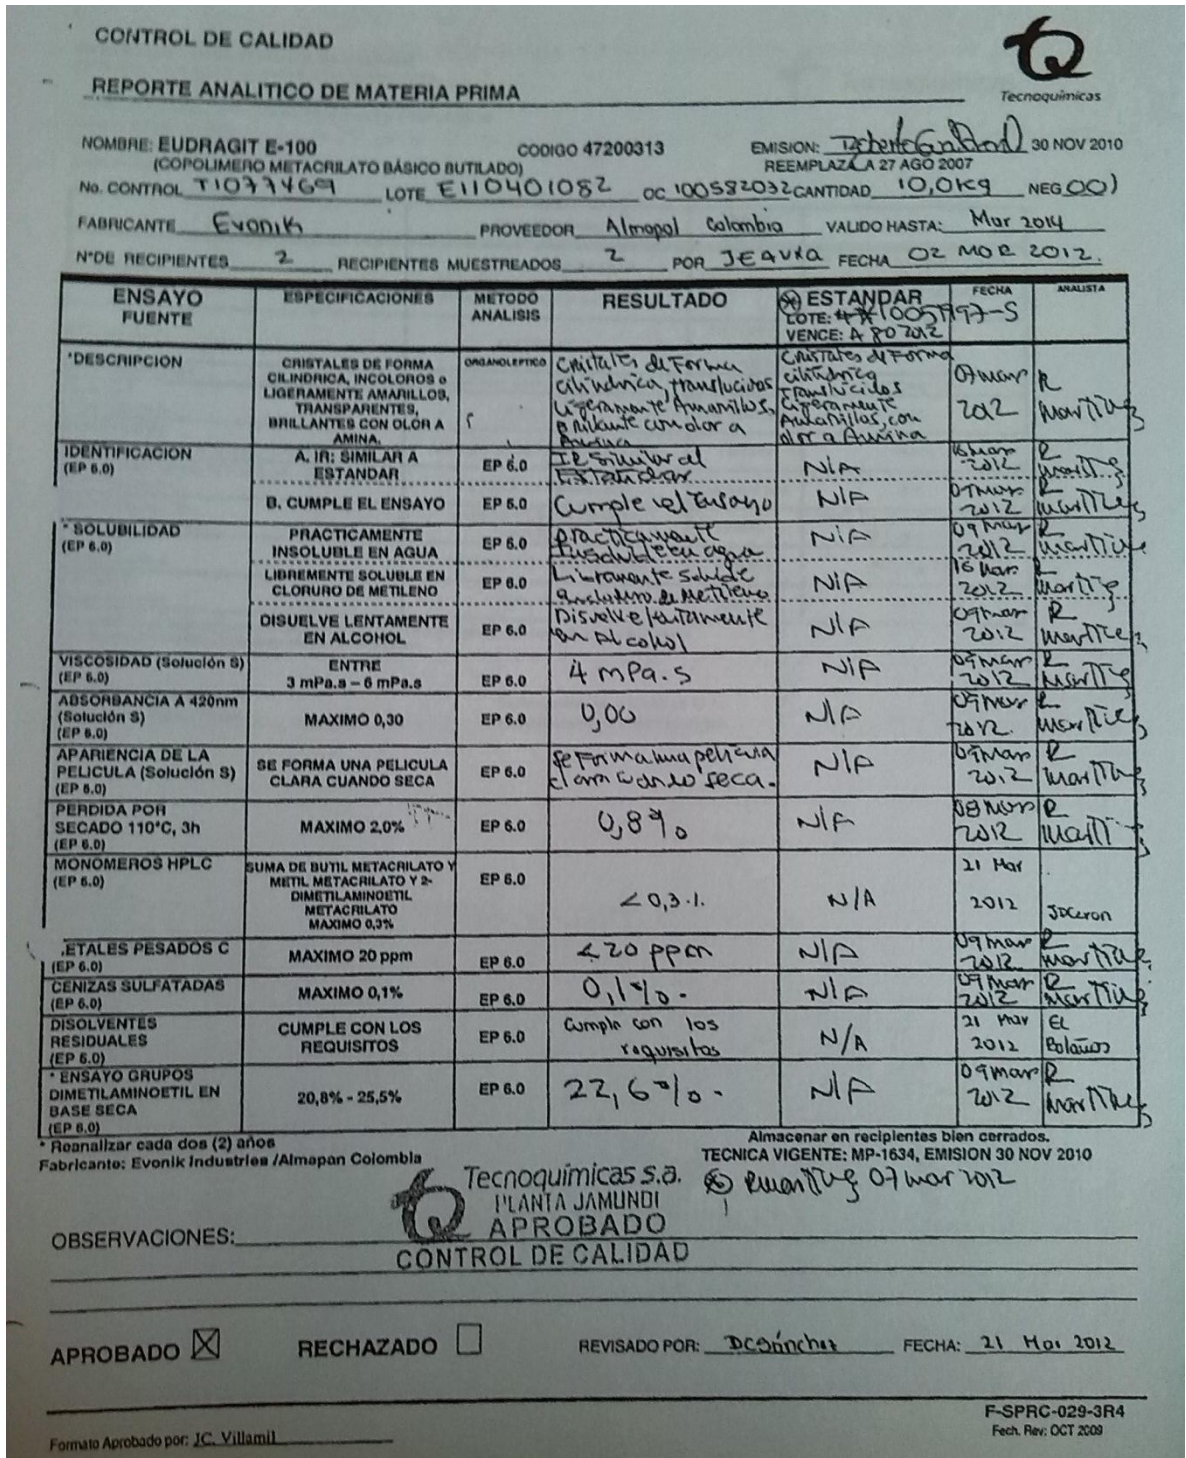 CONTROL DE CALIDAD
REPORTE ANALITICO DE MATERIA PRIMA
TQ
Tecnoquímicas
NOMBRE: EUDRAGIT E-100 CODIGO 47200313 EMISION: 30 NOV 2010
(COPOLIMERO METACRILATO BÁSICO BUTILADO) REEMPLAZA LA 27 AGO 2007
No. CONTROL T1077469 LOTE E110401082 OC 100582032 CANTIDAD 10,0Kg NEG 001
FABRICANTE Evonik PROVEEDOR Almapal Colombia VALIDO HASTA: Mar 2014
N°DE RECIPIENTES 2 RECIPIENTES MUESTREADOS 2 POR FECHA 02 MAR 2012.
ENSAYO FUENTE ESPECIFICACIONES METODO ANALISIS RESULTADO ESTANDAR LOTE: VENCE: FECHA ANALISTA
*DESCRIPCION CRISTALES DE FORMA CILINDRICA, INCOLOROS o LIGERAMENTE AMARILLOS, TRANSPARENTES, BRILLANTES CON OLOR A AMINA. ORGANOLEPTICO Cristales de Forma cilindrica, translucidos Ligeramente Amarillos, brillante con olor a Amina Cristales de Forma cilindrica translucidos Ligeramente Amarillos, con olor a Amina 07 mar 2012 R Martinez
IDENTIFICACION (EP 6.0) A. IR: SIMILAR A ESTANDAR EP 6.0 IR Similar al Estandar N/A 16 Mar 2012 R Martinez
B. CUMPLE EL ENSAYO EP 6.0 Cumple el Ensayo N/A 09 mar 2012 R Martinez
* SOLUBILIDAD (EP 6.0) PRACTICAMENTE INSOLUBLE EN AGUA EP 6.0 Practicamente Insoluble en agua N/A 09 Mar 2012 R Martinez
LIBREMENTE SOLUBLE EN CLORURO DE METILENO EP 6.0 Libremente soluble en cloruro de Metileno N/A 16 Mar 2012 R Martinez
DISUELVE LENTAMENTE EN ALCOHOL EP 6.0 Disuelve lentamente en Alcohol N/A 09 mar 2012 R Martinez
VISCOSIDAD (Solución S) (EP 6.0) ENTRE 3 mPa.s – 6 mPa.s EP 6.0 4 mPa.s N/A 09 mar 2012 R Martinez
ABSORBANCIA A 420nm (Solución S) (EP 6.0) MAXIMO 0,30 EP 6.0 0,00 N/A 09 mar 2012. R Martinez
APARIENCIA DE LA PELICULA (Solución S) (EP 6.0) SE FORMA UNA PELICULA CLARA CUANDO SECA EP 6.0 Se Forma una pelicula clara cuando seca. N/A 09 mar 2012 R Martinez
PERDIDA POR SECADO 110°C, 3h (EP 6.0) MAXIMO 2,0% EP 6.0 0,8% N/A 08 Mar 2012 R Martinez
MONOMEROS HPLC (EP 6.0) SUMA DE BUTIL METACRILATO Y METIL METACRILATO Y 2-DIMETILAMINOETIL METACRILATO MAXIMO 0,3% EP 6.0 <0,3% N/A 21 Mar 2012 JDCeron
.ETALES PESADOS C (EP 6.0) MAXIMO 20 ppm EP 6.0 <20 ppm N/A 09 mar 2012 R Martinez
CENIZAS SULFATADAS (EP 6.0) MAXIMO 0,1% EP 6.0 0,1%. N/A 09 Mar 2012 R Martinez
DISOLVENTES RESIDUALES (EP 6.0) CUMPLE CON LOS REQUISITOS EP 6.0 Cumple con los requisitos N/A 21 Mar 2012 EL Bolaños
* ENSAYO GRUPOS DIMETILAMINOETIL EN BASE SECA (EP 6.0) 20,8% - 25,5% EP 6.0 22,6%. N/A 09 mar 2012 R Martinez
* Reanalizar cada dos (2) años Almacenar en recipientes bien cerrados.
Fabricante: Evonik Industries /Almapan Colombia TECNICA VIGENTE: MP-1634, EMISION 30 NOV 2010
Tecnoquímicas s.a. RMartinez 07 mar 2012
PLANTA JAMUNDI
APROBADO
OBSERVACIONES:
CONTROL DE CALIDAD
APROBADO X RECHAZADO REVISADO POR: DCSánchez FECHA: 21 Mar 2012
F-SPRC-029-3R4
Fech. Rev: OCT 2009
Formato Aprobado por: JC. Villamil